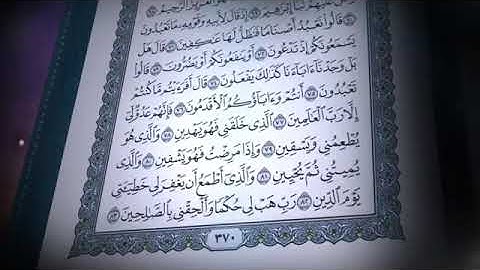 عَلَيْهِمْ نَبَأَ إِبْرَٰهِيمَ ۝٦٩ إِذْ قَالَ لِأَبِيهِ وَقَوْمِهِۦ مَا تَعْبُدُونَ ۝٧٠
قَالُوا۟ نَعْبُدُ أَصْنَامًا فَنَظَلُّ لَهَا عَٰكِفِينَ ۝٧١ قَالَ هَلْ
يَسْمَعُونَكُمْ إِذْ تَدْعُونَ ۝٧٢ أَوْ يَنفَعُونَكُمْ أَوْ يَضُرُّونَ ۝٧٣ قَالُوا۟
بَلْ وَجَدْنَآ ءَابَآءَنَا كَذَٰلِكَ يَفْعَلُونَ ۝٧٤ قَالَ أَفَرَءَيْتُم مَّا كُنتُمْ
تَعْبُدُونَ ۝٧٥ أَنتُمْ وَءَابَآؤُكُمُ ٱلْأَقْدَمُونَ ۝٧٦ فَإِنَّهُمْ عَدُوٌّ لِّىٓ
إِلَّا رَبَّ ٱلْعَٰلَمِينَ ۝٧٧ ٱلَّذِى خَلَقَنِى فَهُوَ يَهْدِينِ ۝٧٨ وَٱلَّذِى هُوَ
يُطْعِمُنِى وَيَسْقِينِ ۝٧٩ وَإِذَا مَرِضْتُ فَهُوَ يَشْفِينِ ۝٨٠ وَٱلَّذِى
يُمِيتُنِى ثُمَّ يُحْيِينِ ۝٨١ وَٱلَّذِىٓ أَطْمَعُ أَن يَغْفِرَ لِى خَطِيٓـَٔتِى
يَوْمَ ٱلدِّينِ ۝٨٢ رَبِّ هَبْ لِى حُكْمًا وَأَلْحِقْنِى بِٱلصَّٰلِحِينَ ۝٨٣
٣٧٠